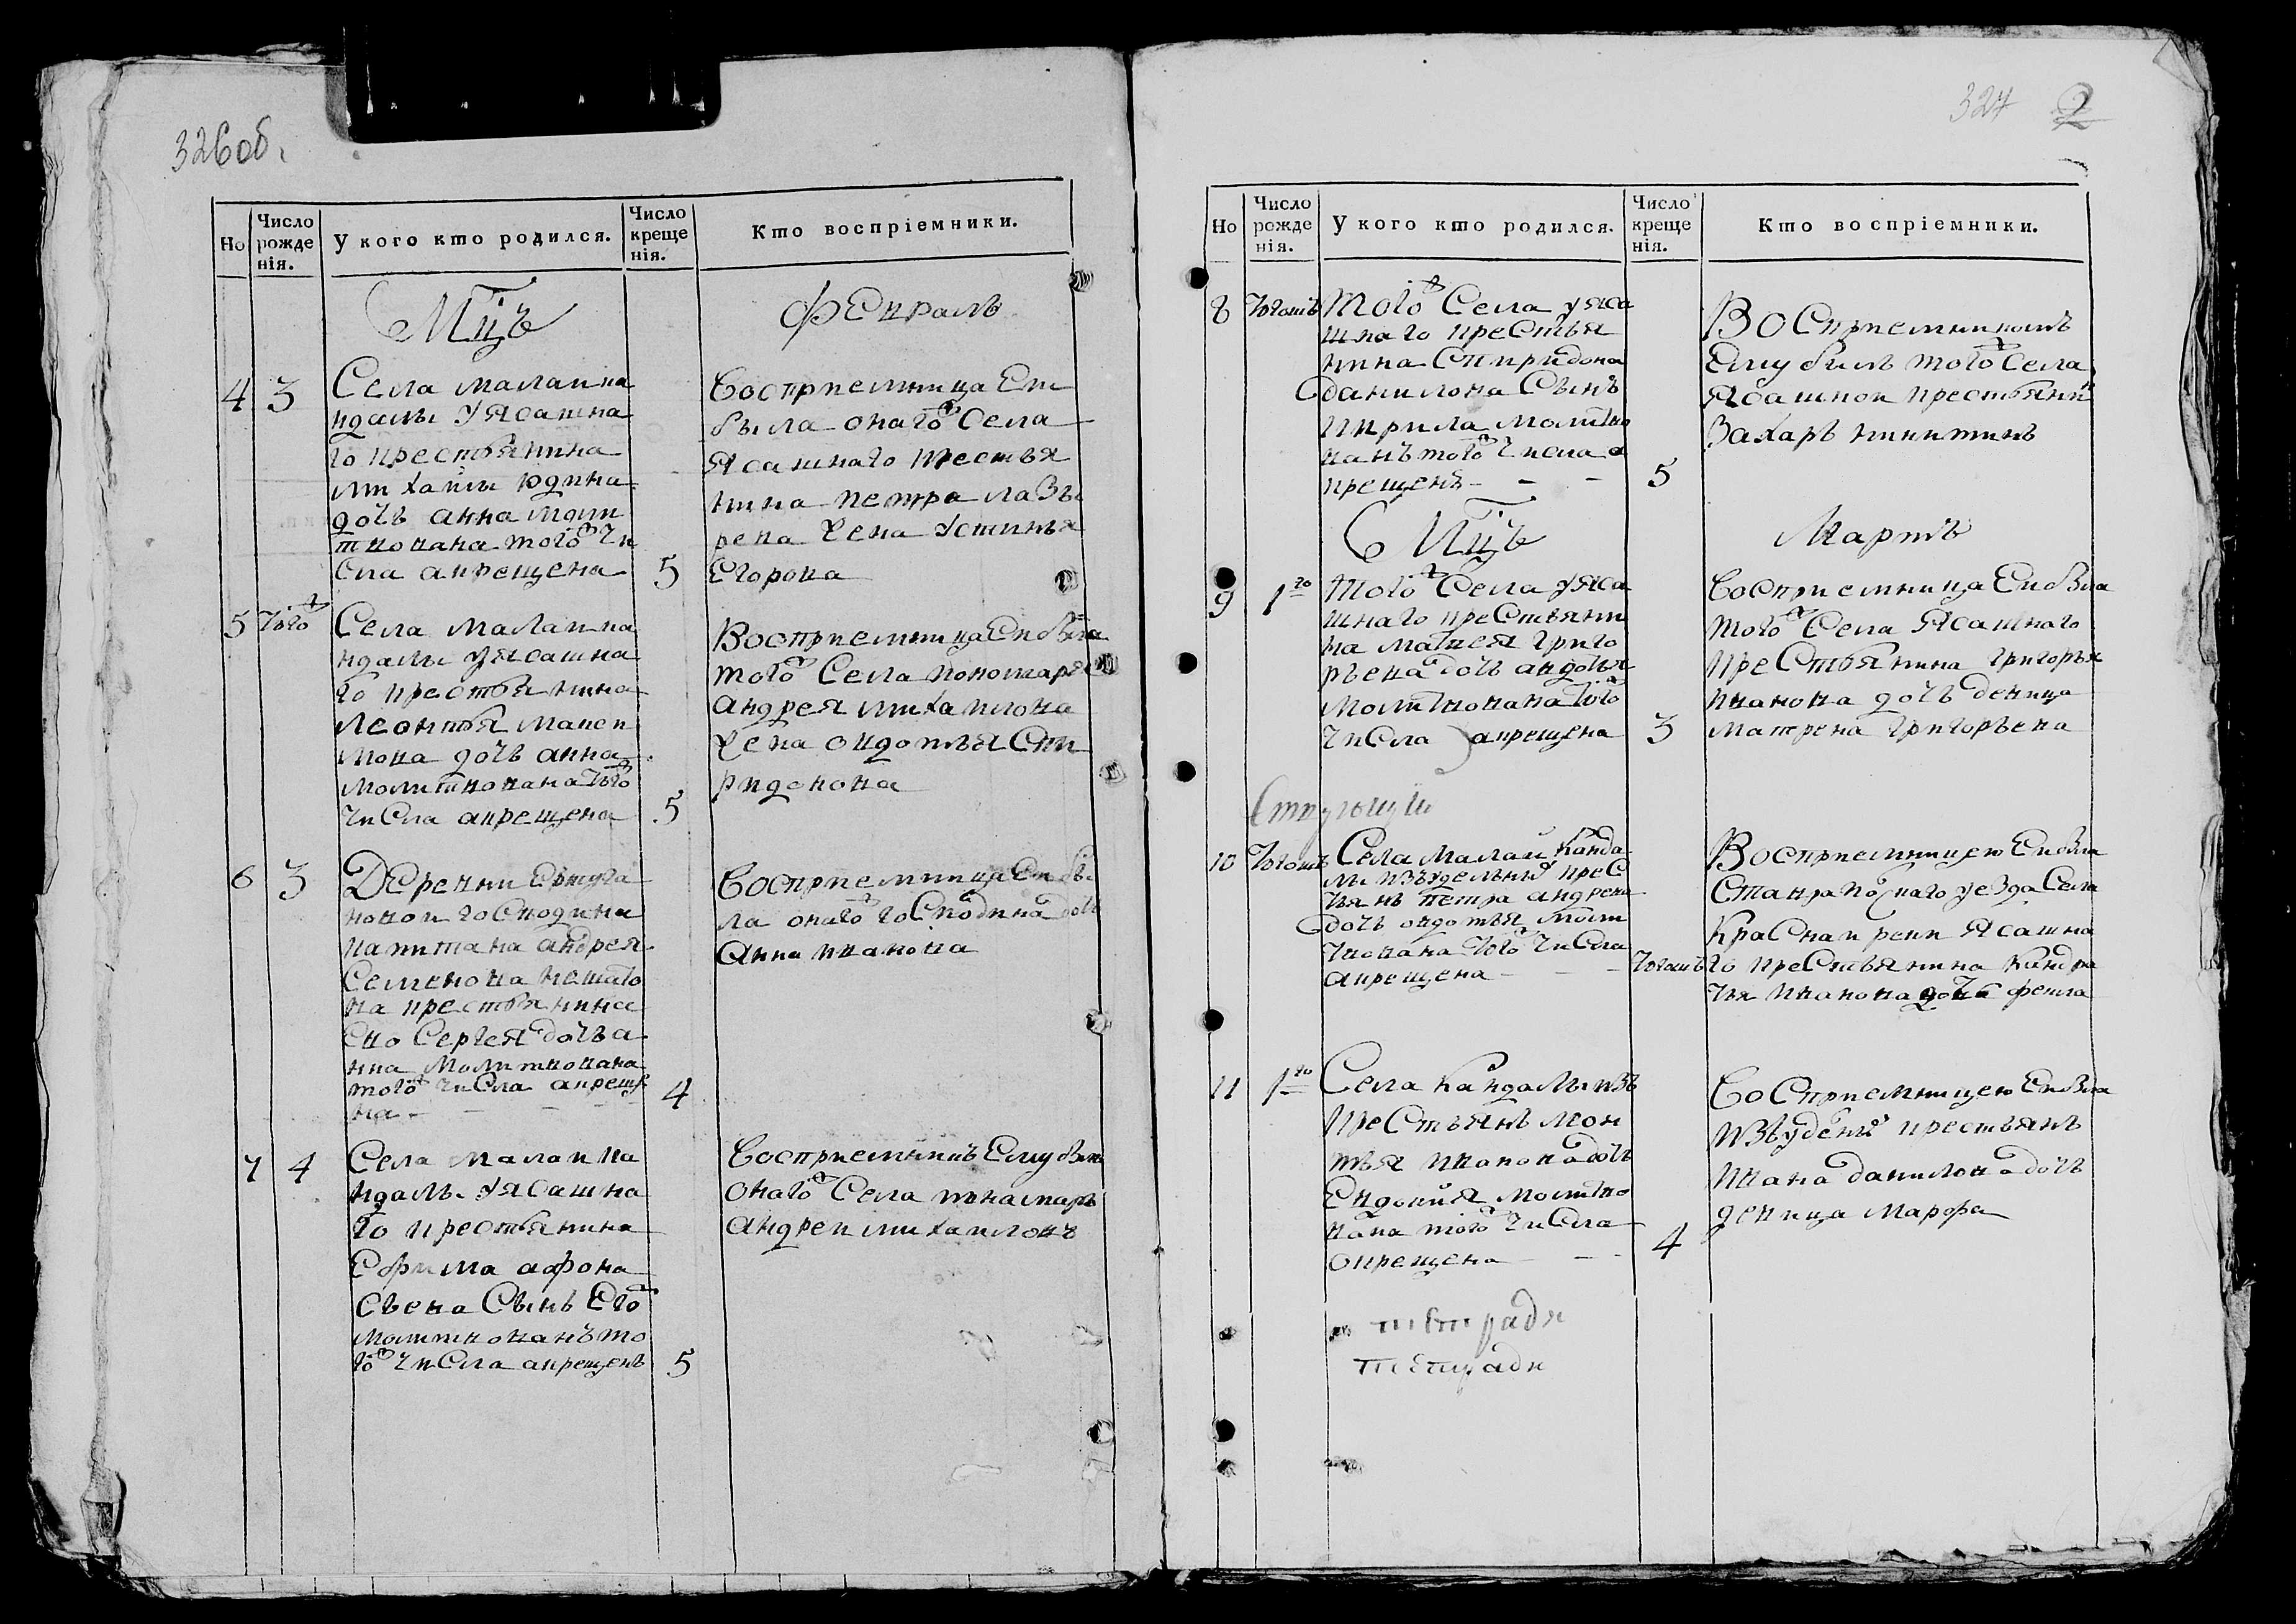 326об.
Но
Число рожде нія.
У кого кто родился.
Число креще нія.
Кто воспріемники.
Мцъ
Февраль
4
3
Села малаи ка
ндалы уясашна
го крестьянина
михаилы юдина
дочь анна моли
твована того чи
сла акрещена
5
Восприемница Еи
была онаго Села
Ясашнаго крестья
нина петра лазъ
рева жена устинья
Егорова
5
того
Села Малаи ка
ндалы уясашна
го крестьянина
леонтья макси
мова дочь анна
молитвована того
числа акрещена
5
Восприемница Еи была
того Села пономаря
андрея михаилова
жена овдотья Спи
ридонова
6
3
Деревни Ертуга
новои господина
капитана андрея
Семенова
на крестьянина
Ево Сергея дочь а
нна Молитвована
того числа акреще
на
4
Восприемница Еи бы
ла онаго господина дочь
Анна иванова
7
4
Села малаи ка
ндалы уясашна
го крестьянина
Ефима афона
сьева Сынъ Его
молитвованъ то
го числа акрещенъ
5
Восприемникъ Ему былъ
онаго Села понамарь
андреи михаиловъ
327 2
Но
Число рожде нія.
У кого кто родился.
Число креще нія.
Кто воспріемники.
8
тогошъ
того Села уяса
шнаго крестья
нина Спиридона
данилова Сынъ
кирила молитво
ванъ того числа а
крещенъ
5
Восприемникомъ
Ему былъ того Села
Ясашнои крестьянин
Захаръ никитинъ
Мцъ
Мартъ
9
1го
того Села уяса
шнаго крестьяни
на матвея григо
рьева дочь авдотья
молитвована того
числа акрещена
3
Восприемница Еи была
того Села Ясашнаго
крестьянина григорья
иванова дочь девица
матрена григорьева
10
тогошъ
Села Малаи Канда
лы изъудельныи крес
тьянъ петра андреева
дочь овдотья Моли
твована того числа
акрещена
тогошъ
Восприемницею Еи была
Ставропо наго уезда Села
Краснаи реки Ясашна
го крестьянина Кандра
тья Иванова дочь фекла
11
1го
Села Кандалы изъ
крестьянъ леон
тья иванова дочь
Евдокия молитво
вана того числа
окрещена
4
Восприемницею Еи была
изъуделны крестьянъ
ивана данилова дочь
девица марфа
тетради
тетради